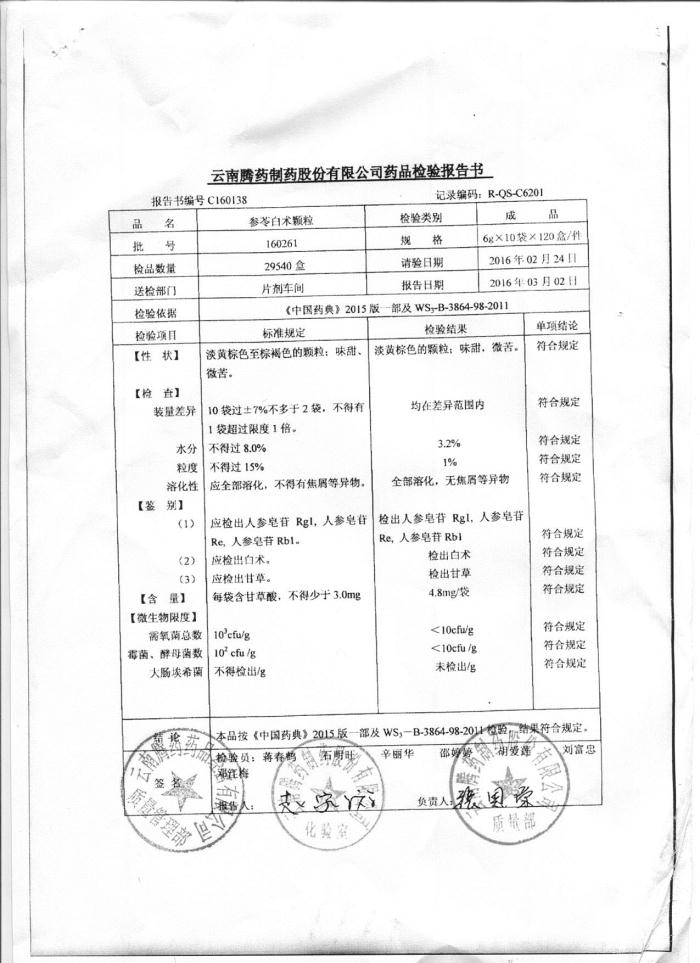 云南腾药制药股份有限公司药品检验报告书
报告书编号 C160138 记录编码：R-QS-C6201
品 名 参苓白术颗粒 检验类别 成 品
批 号 160261 规 格 6g×10袋×120盒/件
检品数量 29540 盒 请验日期 2016 年 02 月 24 日
送检部门 片剂车间 报告日期 2016 年 03 月 02 日
检验依据 《中国药典》2015 版一部及 WS₃-B-3864-98-2011
检验项目 标准规定 检验结果 单项结论
【性 状】 淡黄棕色至棕褐色的颗粒；味甜、 淡黄棕色的颗粒；味甜，微苦。 符合规定
微苦。
【检 查】
装量差异 10 袋过±7%不多于 2 袋，不得有 均在差异范围内 符合规定
1 袋超过限度 1 倍。
水分 不得过 8.0% 3.2% 符合规定
粒度 不得过 15% 1% 符合规定
溶化性 应全部溶化，不得有焦屑等异物。 全部溶化，无焦屑等异物 符合规定
【鉴 别】
（1） 应检出人参皂苷 Rg1，人参皂苷 检出人参皂苷 Rg1，人参皂苷
Re, 人参皂苷 Rb1。 Re, 人参皂苷 Rb1 符合规定
（2） 应检出白术。 检出白术 符合规定
（3） 应检出甘草。 检出甘草 符合规定
【含 量】 每袋含甘草酸，不得少于 3.0mg 4.8mg/袋 符合规定
【微生物限度】
需氧菌总数 10³cfu/g ＜10cfu/g 符合规定
霉菌、酵母菌数 10² cfu /g ＜10cfu /g 符合规定
大肠埃希菌 不得检出/g 未检出/g 符合规定
结 论 本品按《中国药典》2015 版一部及 WS₃－B-3864-98-2011 检验，结果符合规定。
签 名 检验员：蒋春鹤 石明旺 辛丽华 邵婷婷 胡爱莲 刘富忠
邓红梅
报告人： 负责人：
质量管理部
化验室
质量部